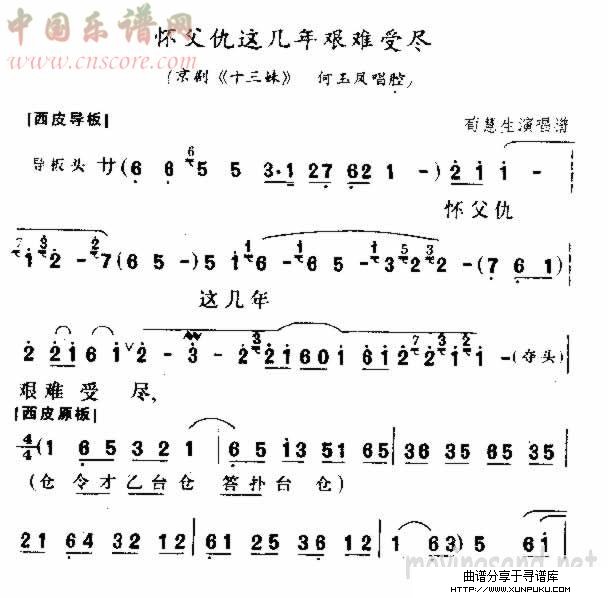 中国乐谱网
www.cnscore.com
怀父仇这几年艰难受尽
(京剧《十三妹》 何玉凤唱腔)
[西皮导板]
荀慧生演唱谱
导板头 サ(6 6 6 5 5 3·1 27 62 1 -) 2 1 1 -
怀父仇
7 1 3 2 - 2 7 (6 5 -) 5 1 1 6 - 1 6 5 - 3 5 2 3 2 - (7 6 1)
这几年
2 21 6 1 ∨ 2 - 3 - 2 3 21 601 61 2 7 2 3 1 1 1 - (夺头)
艰难受 尽,
[西皮原板]
4/4 (1 65 32 1 | 6 5 13 51 65 | 36 35 65 35
(仓 令才乙台仓 答扑台 仓)
21 64 32 12 | 51 65 35 12 | 1 63) 5 61
movingsand.net
曲谱分享于寻谱库
WWW.XUNPUKU.COM